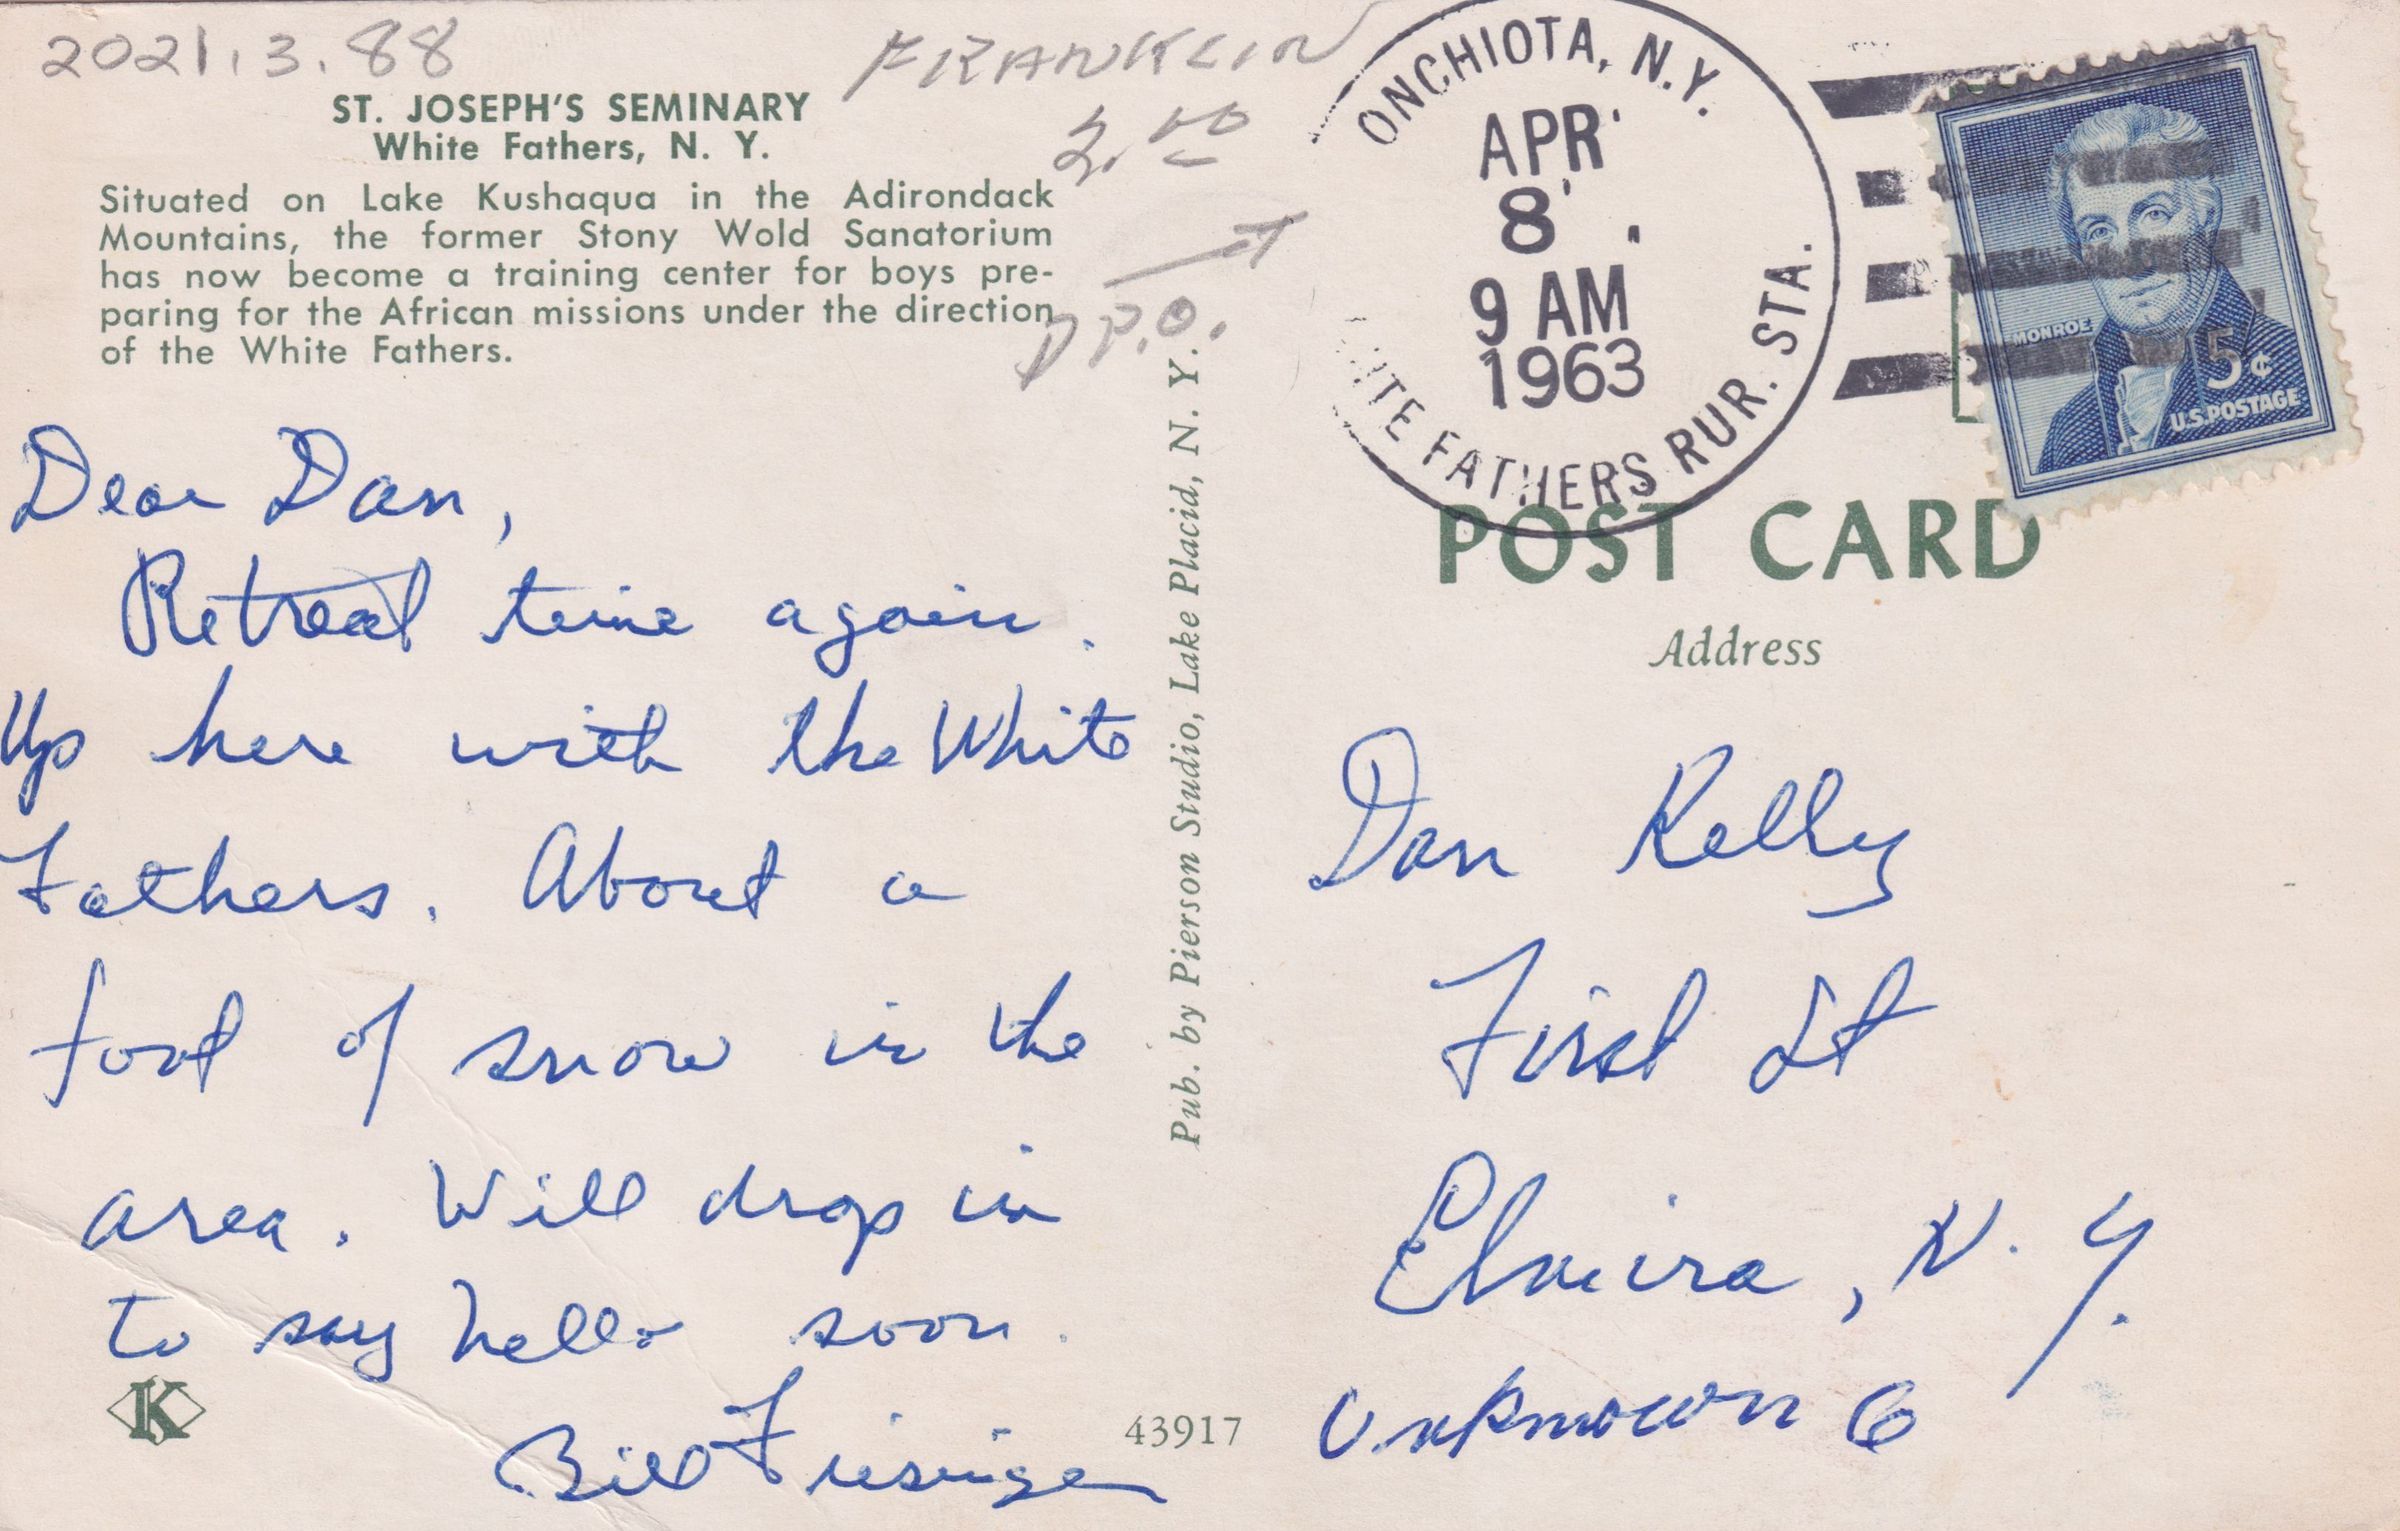 2021.3.88
FRANKLIN
3.00
D.P.O.
ST. JOSEPH'S SEMINARY
White Fathers, N. Y.
Situated on Lake Kushaqua in the Adirondack
Mountains, the former Stony Wold Sanatorium
has now become a training center for boys pre-
paring for the African missions under the direction
of the White Fathers.
Dear Dan,
Retreat time again.
Up here with the White
Fathers. About a
foot of snow in the
area. Will drop in
to say hello soon.
Bill
K
43917
Pub. by Pierson Studio, Lake Placid, N. Y.
ONCHIOTA, N.Y.
APR
8
9 AM
1963
ITE FATHERS RUR. STA.
MONROE
5¢
U.S. POSTAGE
POST CARD
Address
Dan Kelly
First St
Elmira, N. Y.
Unknown 6